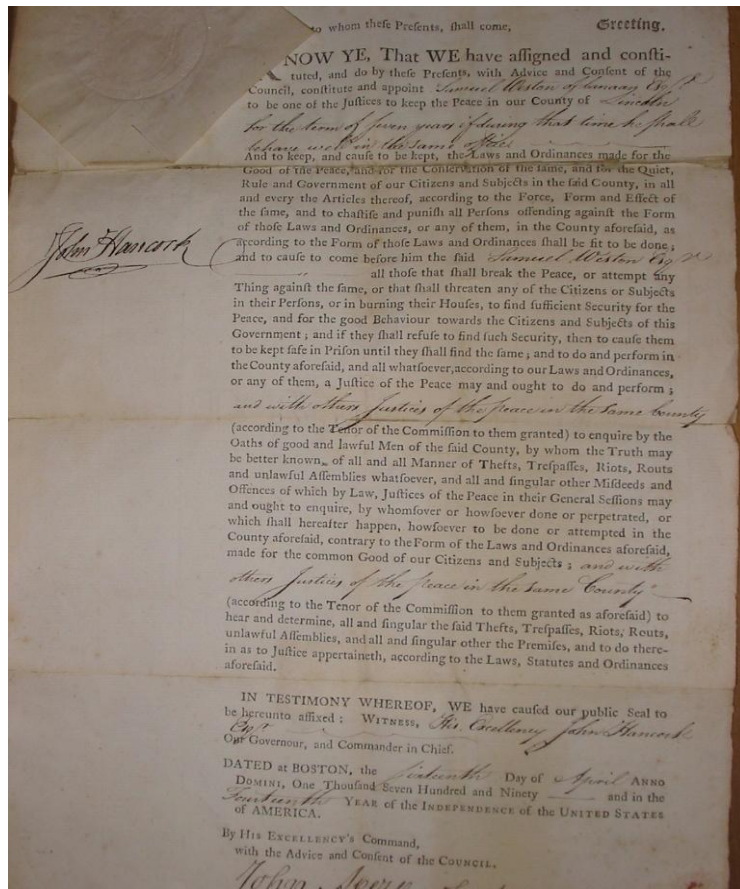 to whom theſe Preſents, ſhall come, Greeting.
KNOW YE, That WE have aſſigned and conſti-
tuted, and do by theſe Preſents, with Advice and Conſent of the
Council, conſtitute and appoint Samuel Weston of Canaan Esqr
to be one of the Juſtices to keep the Peace in our County of Lincoln
for the term of ſeven years if during that time he ſhall
behave well in the same office
And to keep, and cauſe to be kept, the Laws and Ordinances made for the
Good of the Peace, and for the Conſervation of the ſame, and for the Quiet,
Rule and Government of our Citizens and Subjects in the ſaid County, in all
and every the Articles thereof, according to the Force, Form and Effect of
the ſame, and to chaſtiſe and puniſh all Perſons offending againſt the Form
of thoſe Laws and Ordinances, or any of them, in the County aforeſaid, as
according to the Form of thoſe Laws and Ordinances ſhall be fit to be done;
John Hancock
and to cauſe to come before him the ſaid Samuel Weston Esqr
all thoſe that ſhall break the Peace, or attempt any
Thing againſt the ſame, or that ſhall threaten any of the Citizens or Subjects
in their Perſons, or in burning their Houſes, to find ſufficient Security for the
Peace, and for the good Behaviour towards the Citizens and Subjects of this
Government; and if they ſhall refuſe to find ſuch Security, then to cauſe them
to be kept ſafe in Priſon until they ſhall find the ſame; and to do and perform in
the County aforeſaid, and all whatſoever, according to our Laws and Ordinances,
or any of them, a Juſtice of the Peace may and ought to do and perform;
and with others Justices of the peace in the same County
(according to the Tenor of the Commiſſion to them granted) to enquire by the
Oaths of good and lawful Men of the ſaid County, by whom the Truth may
be better known, of all and all Manner of Thefts, Treſpaſſes, Riots, Routs
and unlawful Aſſemblies whatſoever, and all and ſingular other Miſdeeds and
Offences of which by Law, Juſtices of the Peace in their General Seſſions may
and ought to enquire, by whomſover or howſoever done or perpetrated, or
which ſhall hereafter happen, howſoever to be done or attempted in the
County aforeſaid, contrary to the Form of the Laws and Ordinances aforeſaid,
made for the common Good of our Citizens and Subjects; and with
others Justices of the peace in the same County
(according to the Tenor of the Commiſſion to them granted as aforeſaid) to
hear and determine, all and ſingular the ſaid Thefts, Treſpaſſes, Riots, Routs,
unlawful Aſſemblies, and all and ſingular other the Premiſes, and to do there-
in as to Juſtice appertaineth, according to the Laws, Statutes and Ordinances
aforeſaid.
IN TESTIMONY WHEREOF, WE have cauſed our public Seal to
be hereunto affixed: WITNESS, His Excellency John Hancock
Esqr
Our Governour, and Commander in Chief.
DATED at BOSTON, the ſixteenth Day of April ANNO
DOMINI, One Thouſand Seven Hundred and Ninety and in the
Fourteenth YEAR of the INDEPENDENCE of the UNITED STATES
of AMERICA.
By HIS EXCELLENCY's Command,
with the Advice and Conſent of the COUNCIL.
John Avery